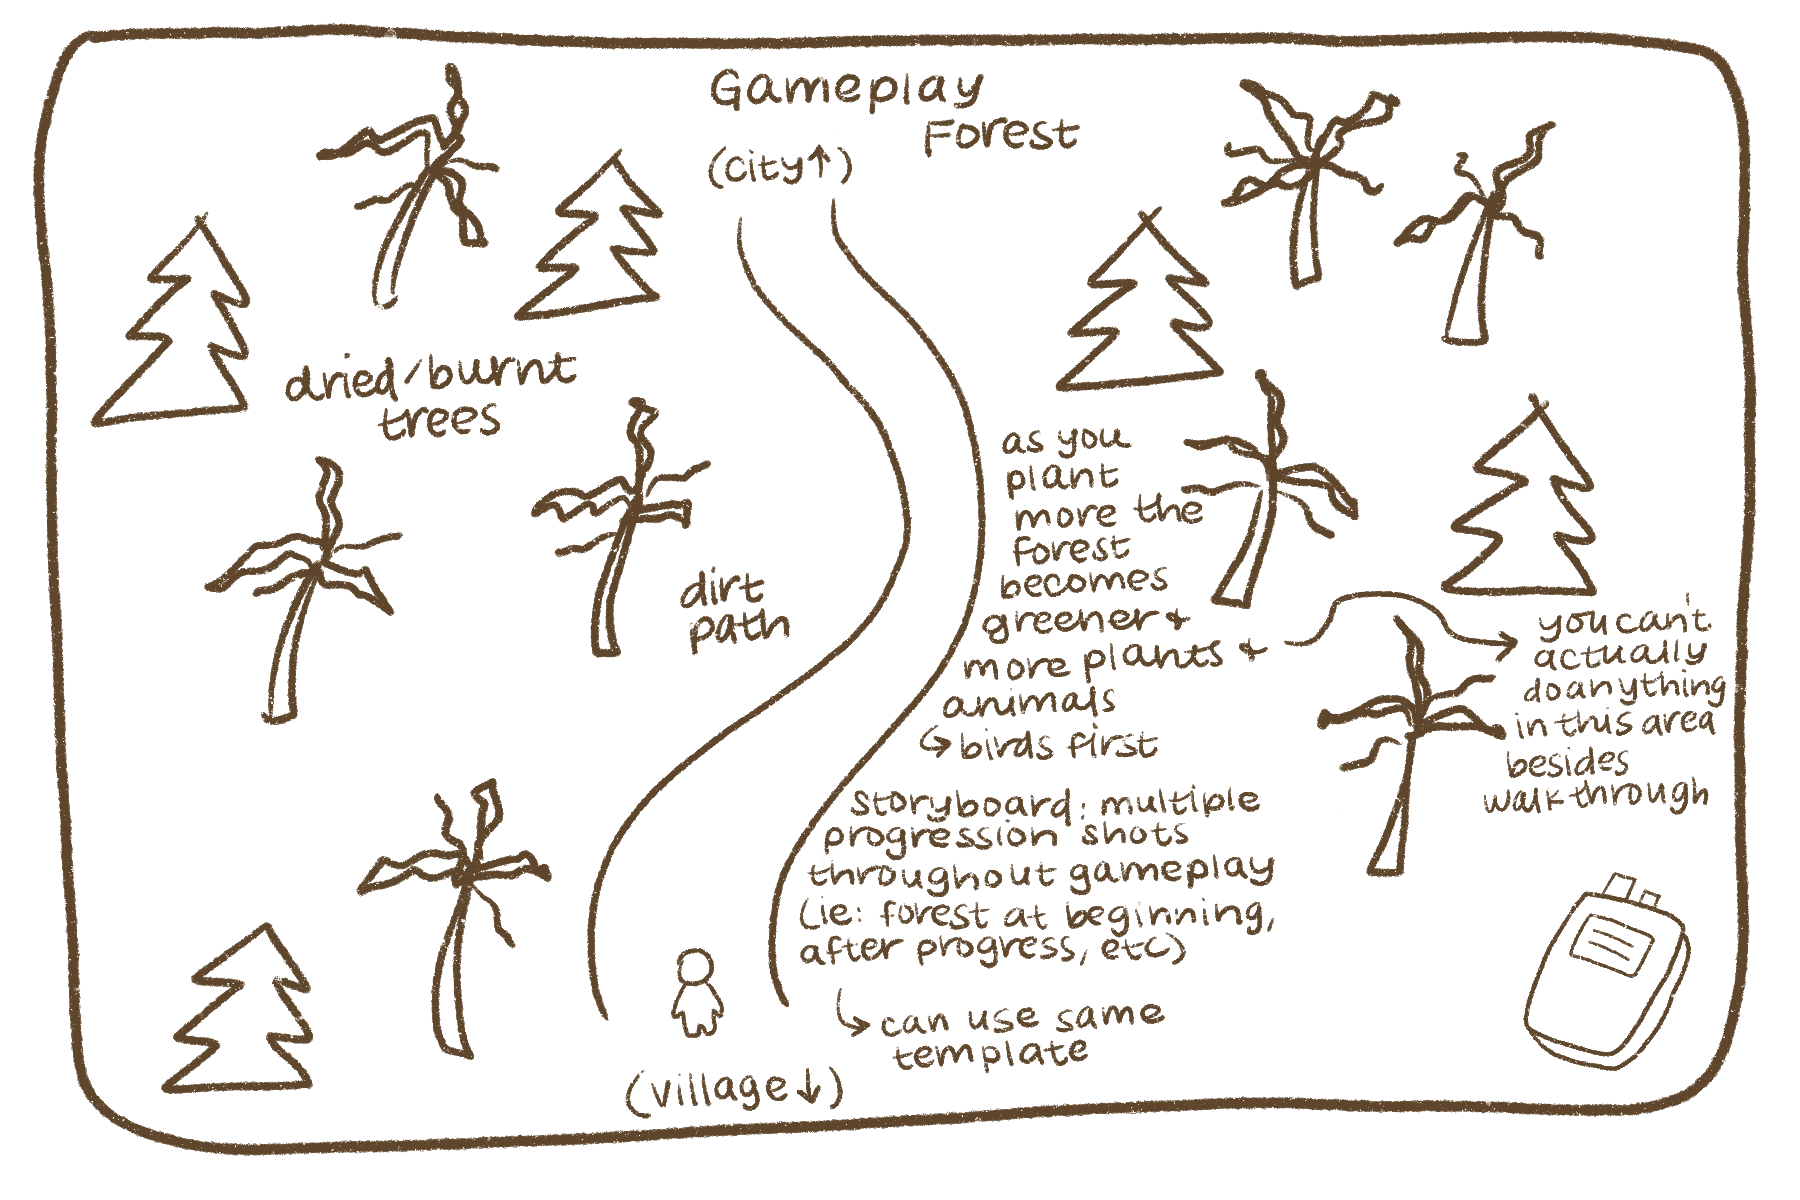 Gameplay
Forest
(city↑)
dried/burnt
trees
dirt
path
as you
plant
more the
forest
becomes
greener &
more plants &
animals
↳ birds first
you can't
actually
do anything
in this area
besides
walkthrough
storyboard: multiple
progression shots
throughout gameplay
(ie: forest at beginning,
after progress, etc)
↳ can use same
template
(village↓)